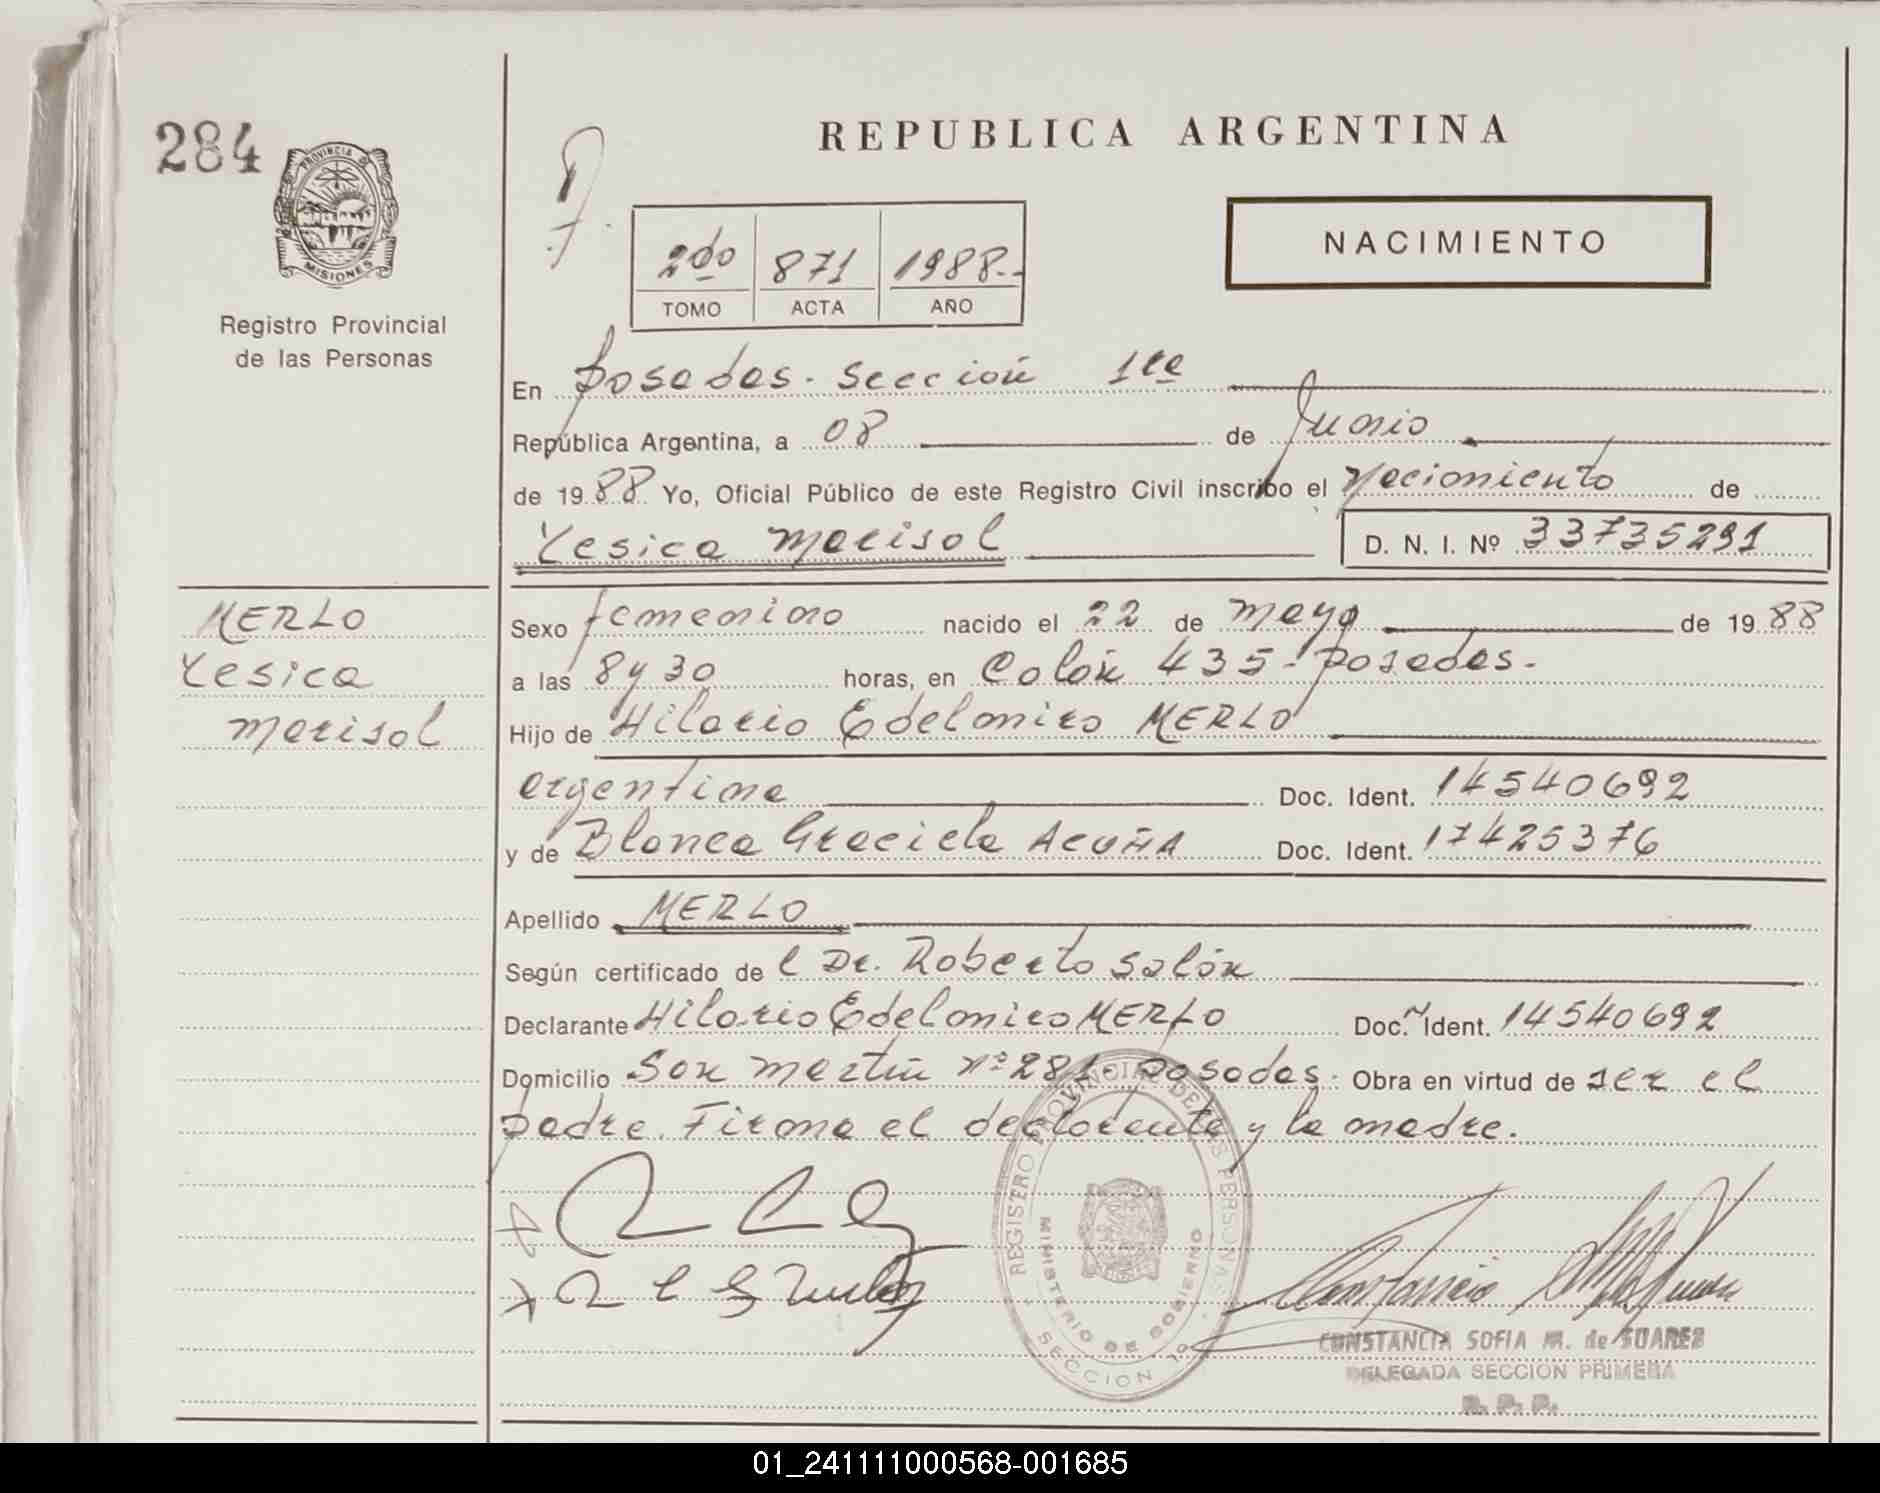 284
REPUBLICA ARGENTINA
PROVINCIA DE
MISIONES
Registro Provincial
de las Personas
2do 871 1988.-
TOMO ACTA AÑO
NACIMIENTO
En Posadas. Sección 1ra
República Argentina, a 08 de Junio
de 1988 Yo, Oficial Público de este Registro Civil inscribo el Nacimiento de
Yesica Marisol D. N. I. Nº 33735291
MERLO
Yesica
Marisol
Sexo femenino nacido el 22 de mayo de 1988
a las 8 y 30 horas, en Colón 435 - Posadas.
Hijo de Hilario Edelmiro MERLO
argentina Doc. Ident. 14540692
y de Blanca Graciela ACUÑA Doc. Ident. 17425376
Apellido MERLO
Según certificado de l Dr. Roberto Solón
Declarante Hilario Edelmiro MERLO Doc. Ident. 14540692
Domicilio San Martín nº 281- Posadas. Obra en virtud de ser el
padre. Firma el declarante y la madre.
REGISTRO PROVINCIAL DE LAS PERSONAS
MINISTERIO DE GOBIERNO
SECCION 1º
CONSTANCIA SOFIA M. de SUAREZ
DELEGADA SECCION PRIMERA
R. P. P.
01_241111000568-001685